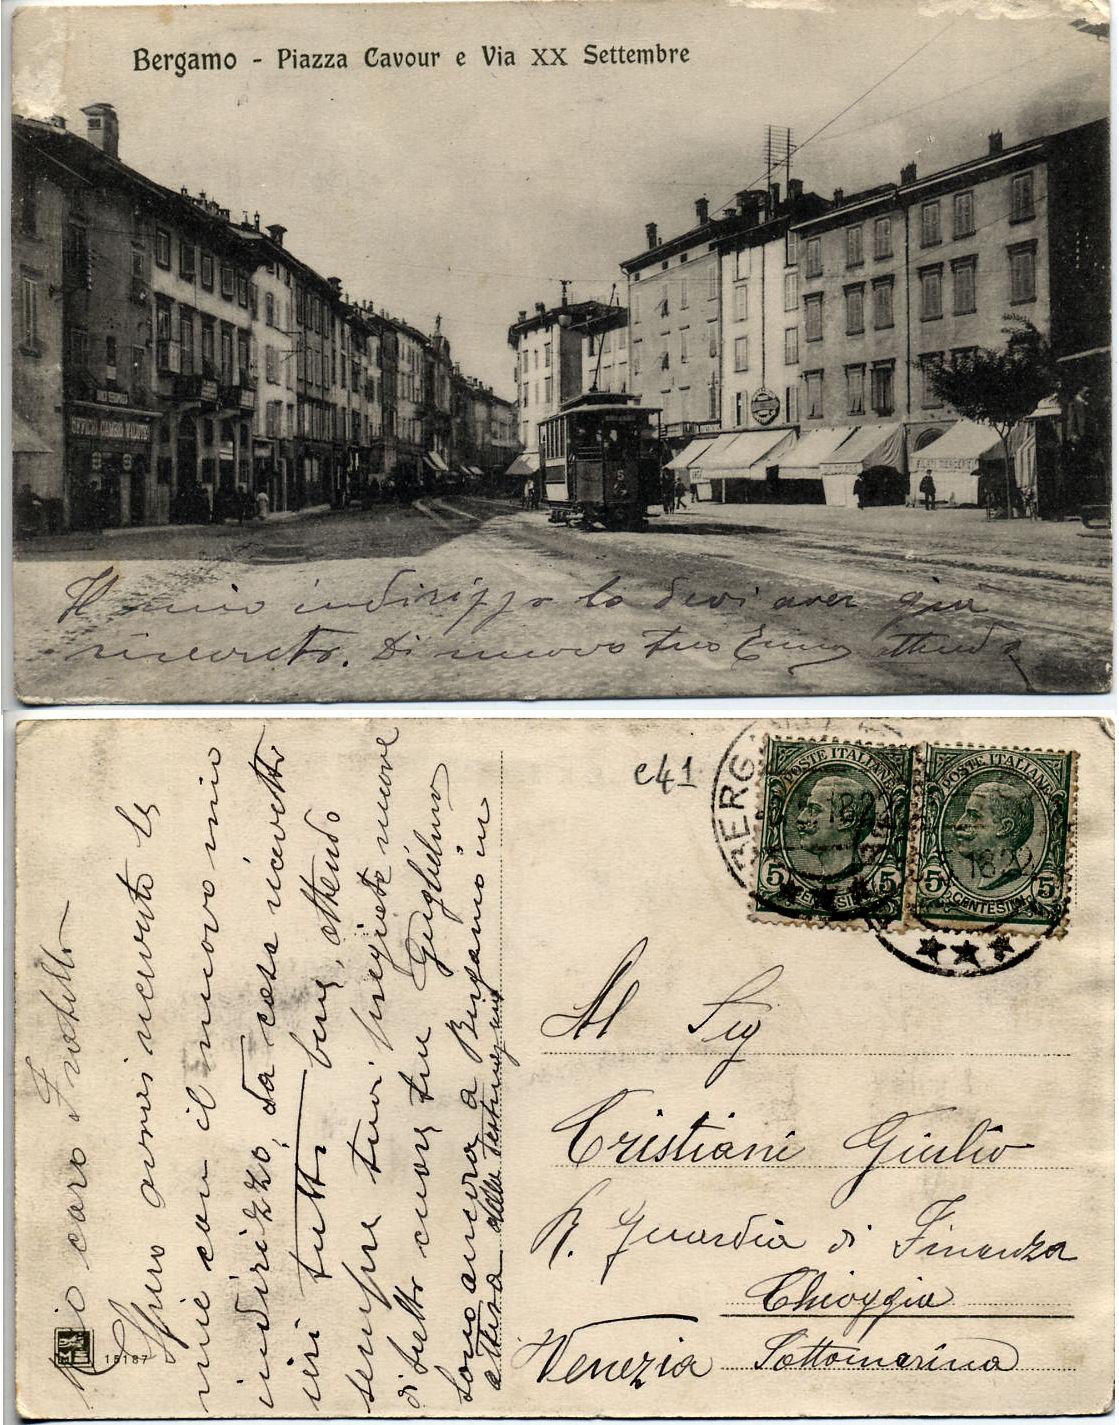 Bergamo - Piazza Cavour e Via XX Settembre
UFFICIO CAMBIO VALUTE
5
Il mio indirizzo lo devi aver già
ricevuto. Di nuovo tuo
Mio caro Fratello
Spero avrai ricevuto le
mie con il nuovo mio
indirizzo, da casa ricevetti
ieri tutti bene, attendo
sempre tuoi pregiate nuove
di tutto cuore tuo Guglielmo
sono ancora a Bergamo in
attesa della
15187
c41
BERG
POSTE ITALIANE
5 CENTESIMI 5
POSTE ITALIANE
5 CENTESIMI 5
18.22
Al Sig
Cristiani Giulio
R. Guardia di Finanza
Chioggia
Venezia Sottomarina